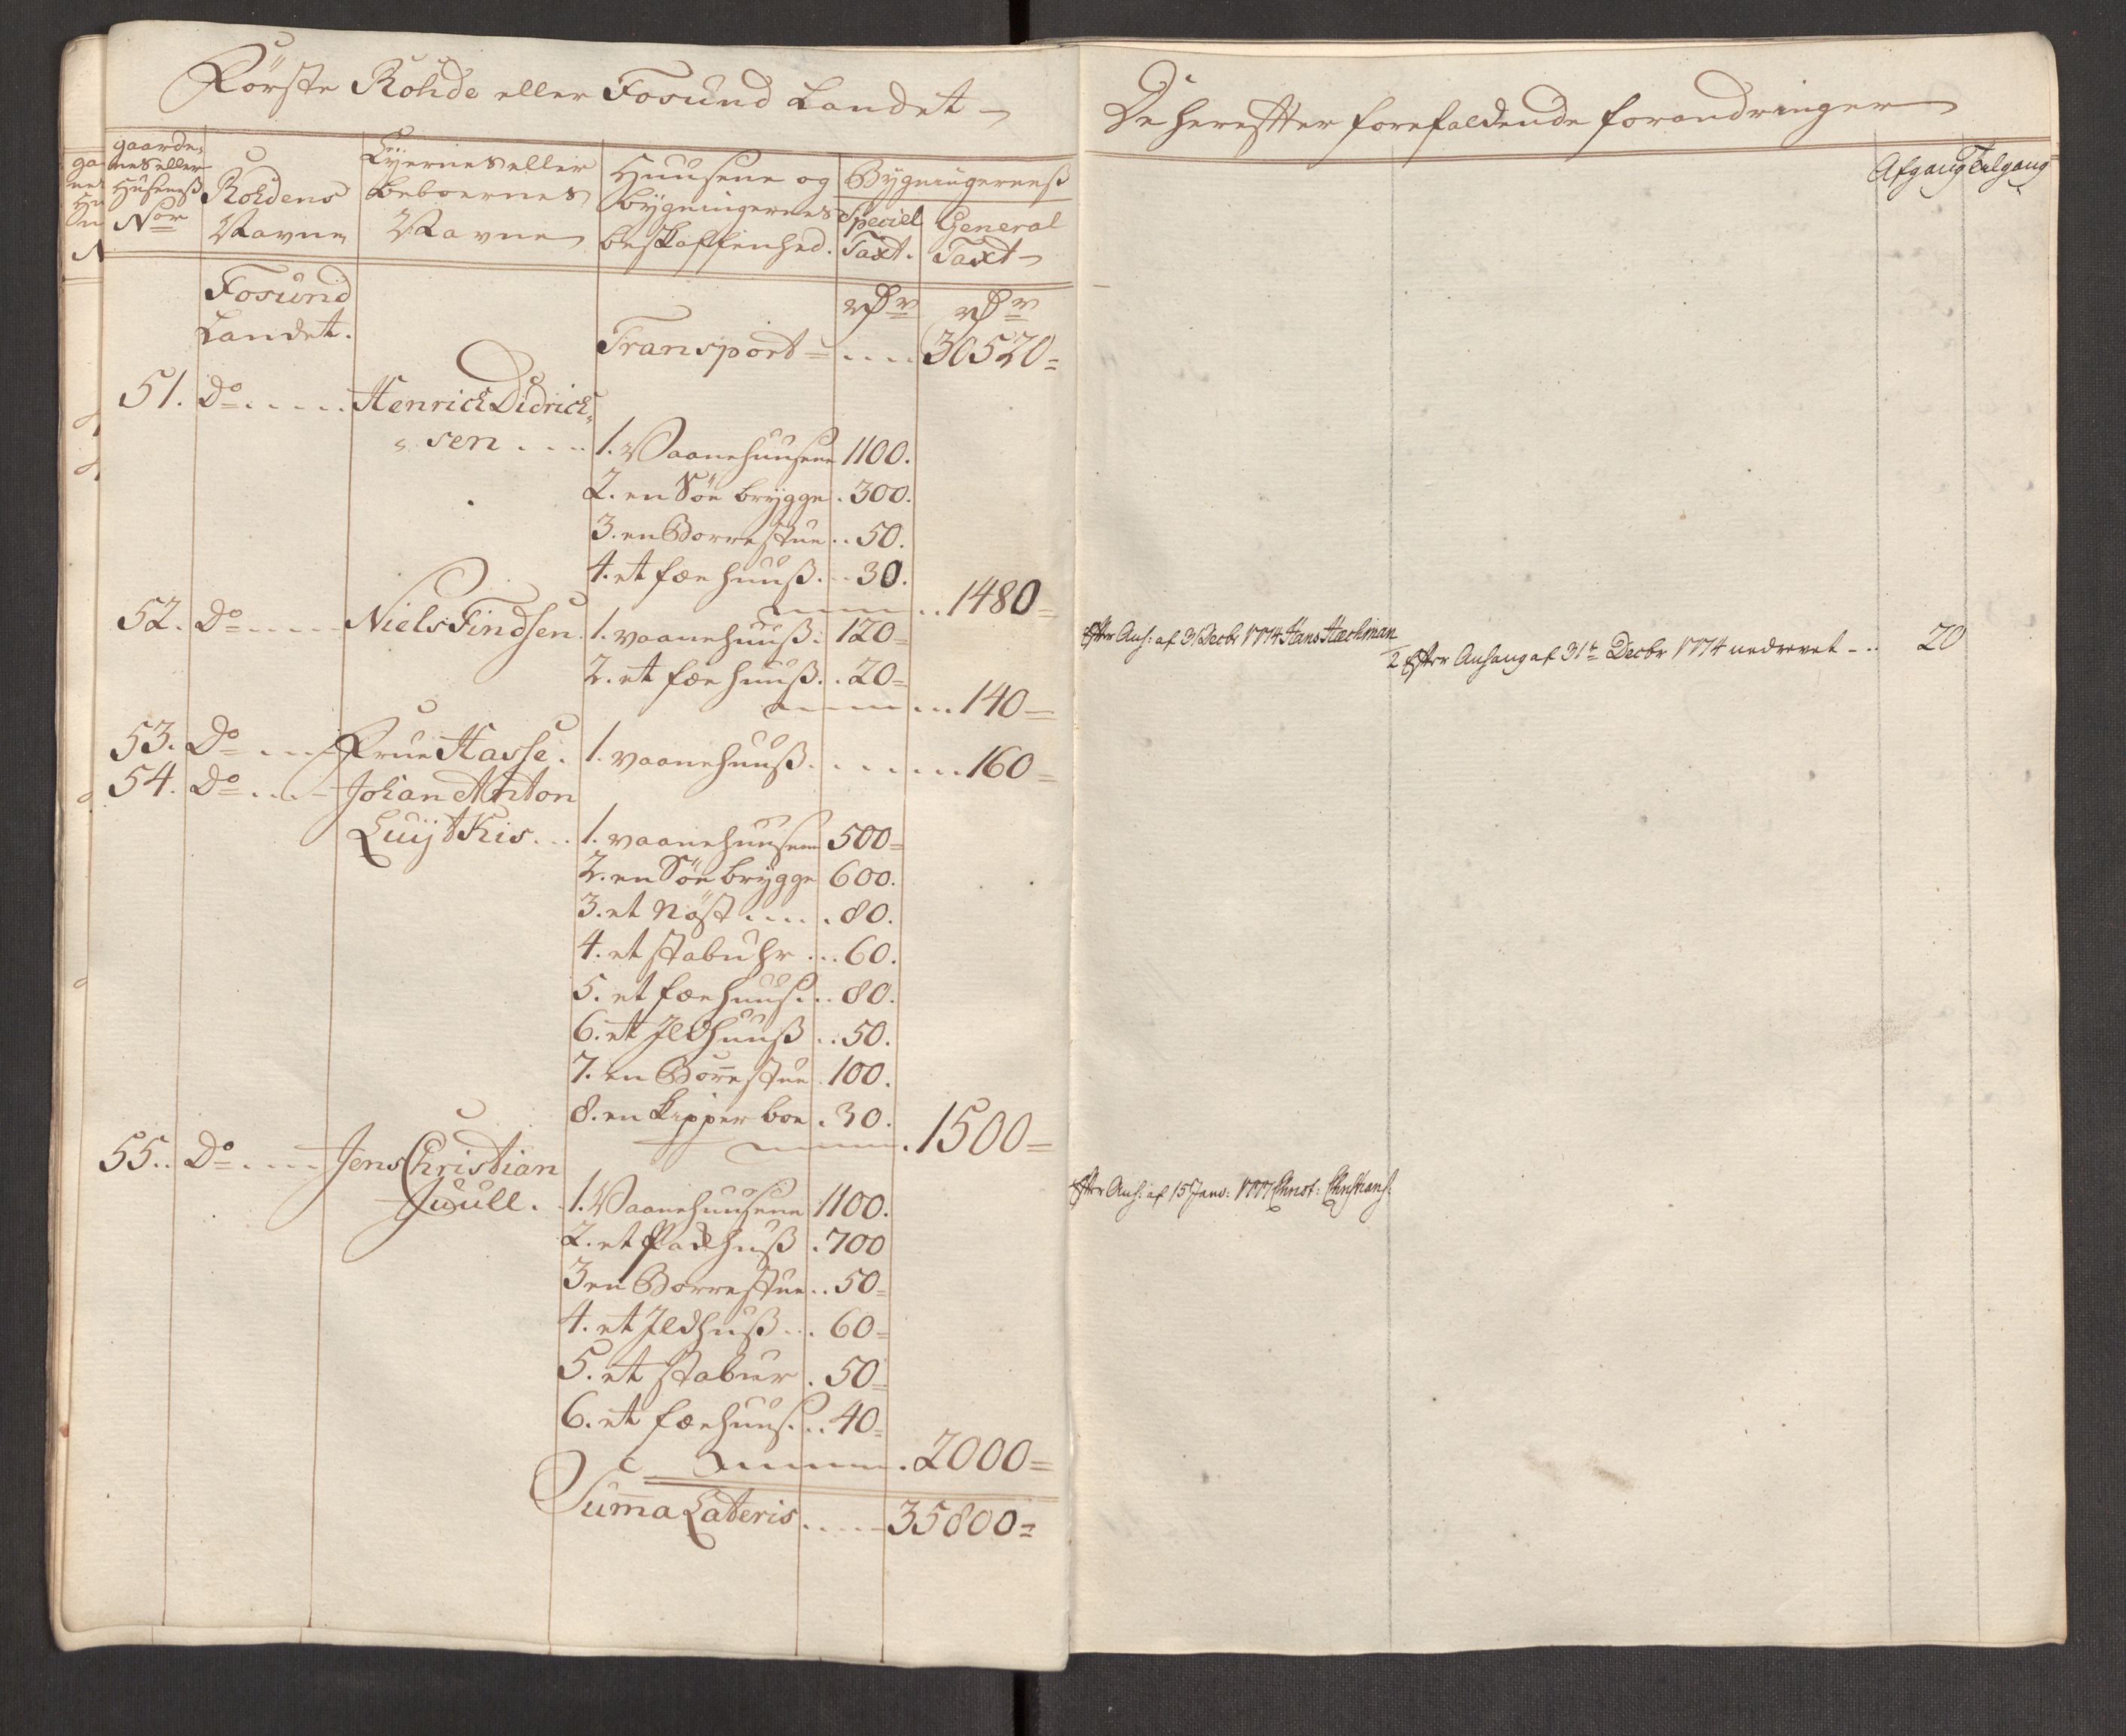 Förste Rohde eller Fosund Landet
gaarde-
nes eller
Huusenes
Nor
Rohdens
Navne
Eyernes eller
beboernes
Navne
Huusene og
bygningernes
beskaffenhed.
Bygningernes
Speciel
Taxt.
General
Taxt
Fosund
Landet.
Transport = .... 30520 =
51. Do ..... Henrich Didrich-
sen .... 1. Vaanehuusene 1100.
2. en Söe brygge . 300.
3. en Borrestue .. 50.
4. et fæehuus. .. 30.
.. 1480 =
52. Do ..... Niels Findsen. 1. vaanehuus: 120 =
2. et fæehuus. . 20 =
... 140 =
53. Do .... Frue Hasse. 1. vaanehuus. ....... 160 =
54. Do .... Johan Anton
Luytkis ... 1. vaanehuusene 500 =
2. en Söe brygge 600.
3. et Nöst ..... 80.
4. et stabuhr ... 60.
5. et fæehuus. .. 80.
6. et Ildhuus .. 50.
7. en Borrestue . 100.
8. en Kipper boe . 30.
. 1500 =
55. Do .... Jens Christian
Juull. 1. Vaanehuusene 1100.
2. et Pakhuus . 700
3 en Borrestue .. 50 =
4. et Ildhuus ... 60 =
5. et stabur . 50 =
6. et fæehuus. .. 40 =
. 2000 =
Suma Lateris ..... 35800 =
De herefter forefaldende forandringer
Afgang Tilgang
Efter Anh: af 31 Decbr 1774 Hans Hackman
2 Efter Anhang af 31te Decbr 1774 nedrevet - .. 20
Efter Anh: af 15 Janv: 1777 Christ: Christians: